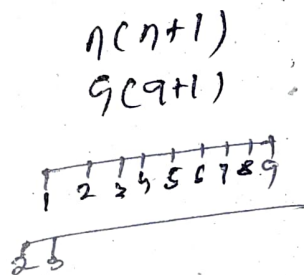 n(n+1)
9(9+1)
1 2 3 4 5 6 7 8 9
2 3